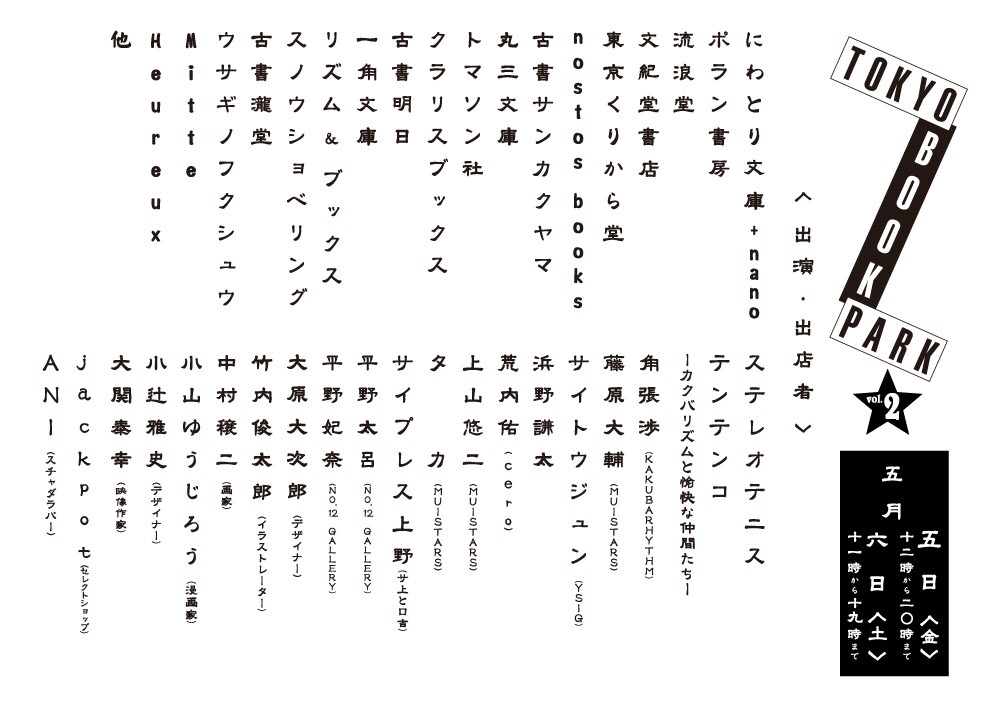 TOKYO
BOOK
PARK
vol.2
五月
五日〈金〉
十二時から二〇時まで
六日〈土〉
十一時から十九時まで
〈出演・出店者〉
にわとり文庫+nano
ポラン書房
流浪堂
文紀堂書店
東京くりから堂
nostos books
古書サンカクヤマ
丸三文庫
トマソン社
クラリスブックス
古書明日
一角文庫
リズム&ブックス
スノウショベリング
古書瀧堂
ウサギノフクシュウ
Mitte
Heureux
他
ステレオテニス
テンテンコ
ーカクバリズムと愉快な仲間たちー
角張渉(KAKUBARHYTHM)
藤原大輔(MUISTARS)
サイトウジュン(YSIG)
浜野謙太
荒内佑(cero)
上山悠二(MUISTARS)
タカ(MUISTARS)
サイプレス上野(サ上とロ吉)
平野太呂(NO.12 GALLERY)
平野妃奈(NO.12 GALLERY)
大原大次郎(デザイナー)
竹内俊太郎(イラストレーター)
中村穣二(画家)
小山ゆうじろう(漫画家)
小辻雅史(デザイナー)
大関泰幸(映像作家)
jackpot(セレクトショップ)
ANI(スチャダラパー)